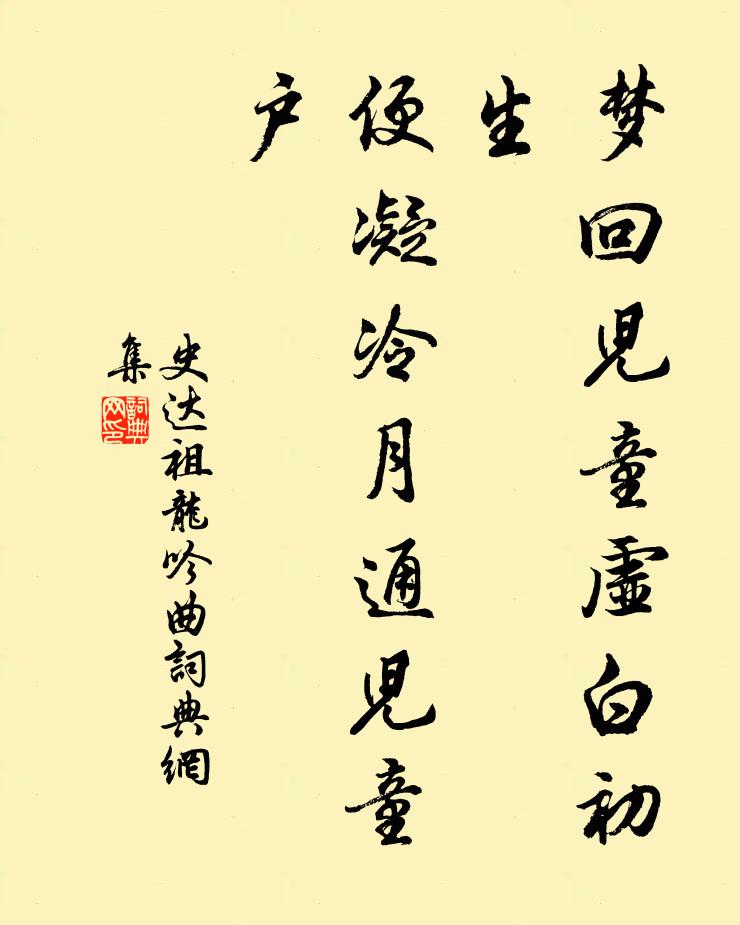 梦回児童虛白初
生
便凝冷月通児童
户
史达祖龍吟曲詞典網
集
詞典
网印